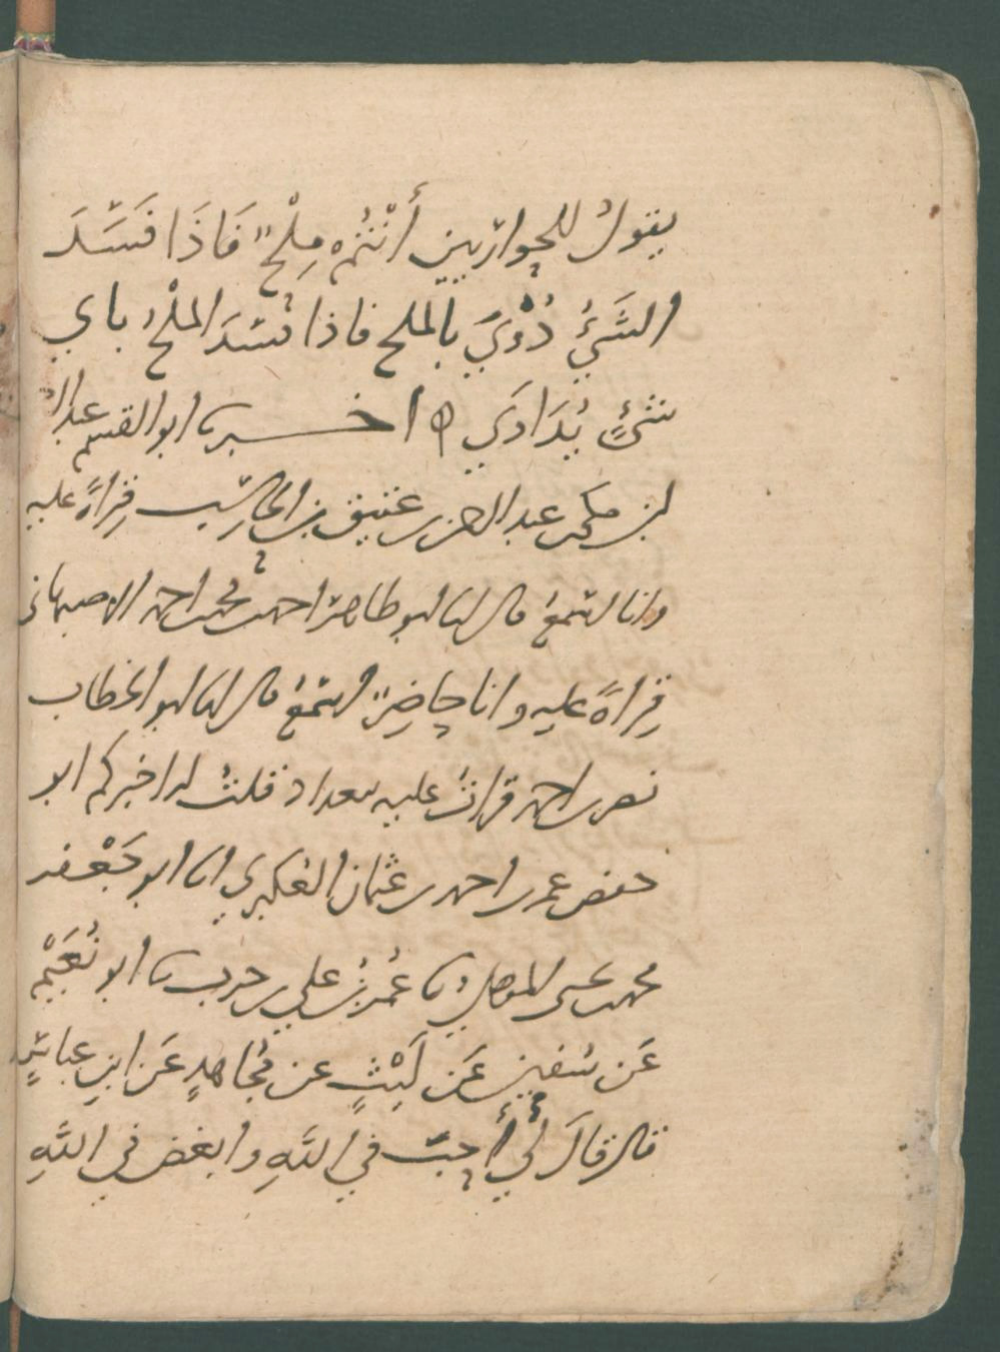 يقول للحواريين أَنْتُم مِلْحٌ فَاذَا فَسَدَ
الشَيءُ دُوْوِيَ بالملح فاذا فَسَدَ الملْحُ باي
شيءٍ يُدَاوَي ه اخبرنا ابو القسم عبد الرحمن
بن مكي بن عبد الرحمن بن عتيق بن الحاسب قِرَاةً عليه
وانا اسمعُ قال انا ابو طاهر احمد بن محمد بن احمد الاصبهاني
قِرَاةً عليه وانا حاضِرٌ اسْمَعُ قال انا ابو الخطاب
نصر بن احمد قراتُ عليه ببغداد قلتُ له اخبركم ابو
حفص عمر بن احمد بن عثمان العُكبري انا ابو جَعْفر
محمد بن يحيى الموصلي نا عُمَرُ بن علي بن حرب نا ابو نُعَيْم
عَن سُفين عَن لَيْثٍ عن مُجاهدٍ عَن ابنِ عباسٍ
قال قالَ لي أَحبّ في اللَّهِ وابغض في اللَّهِ